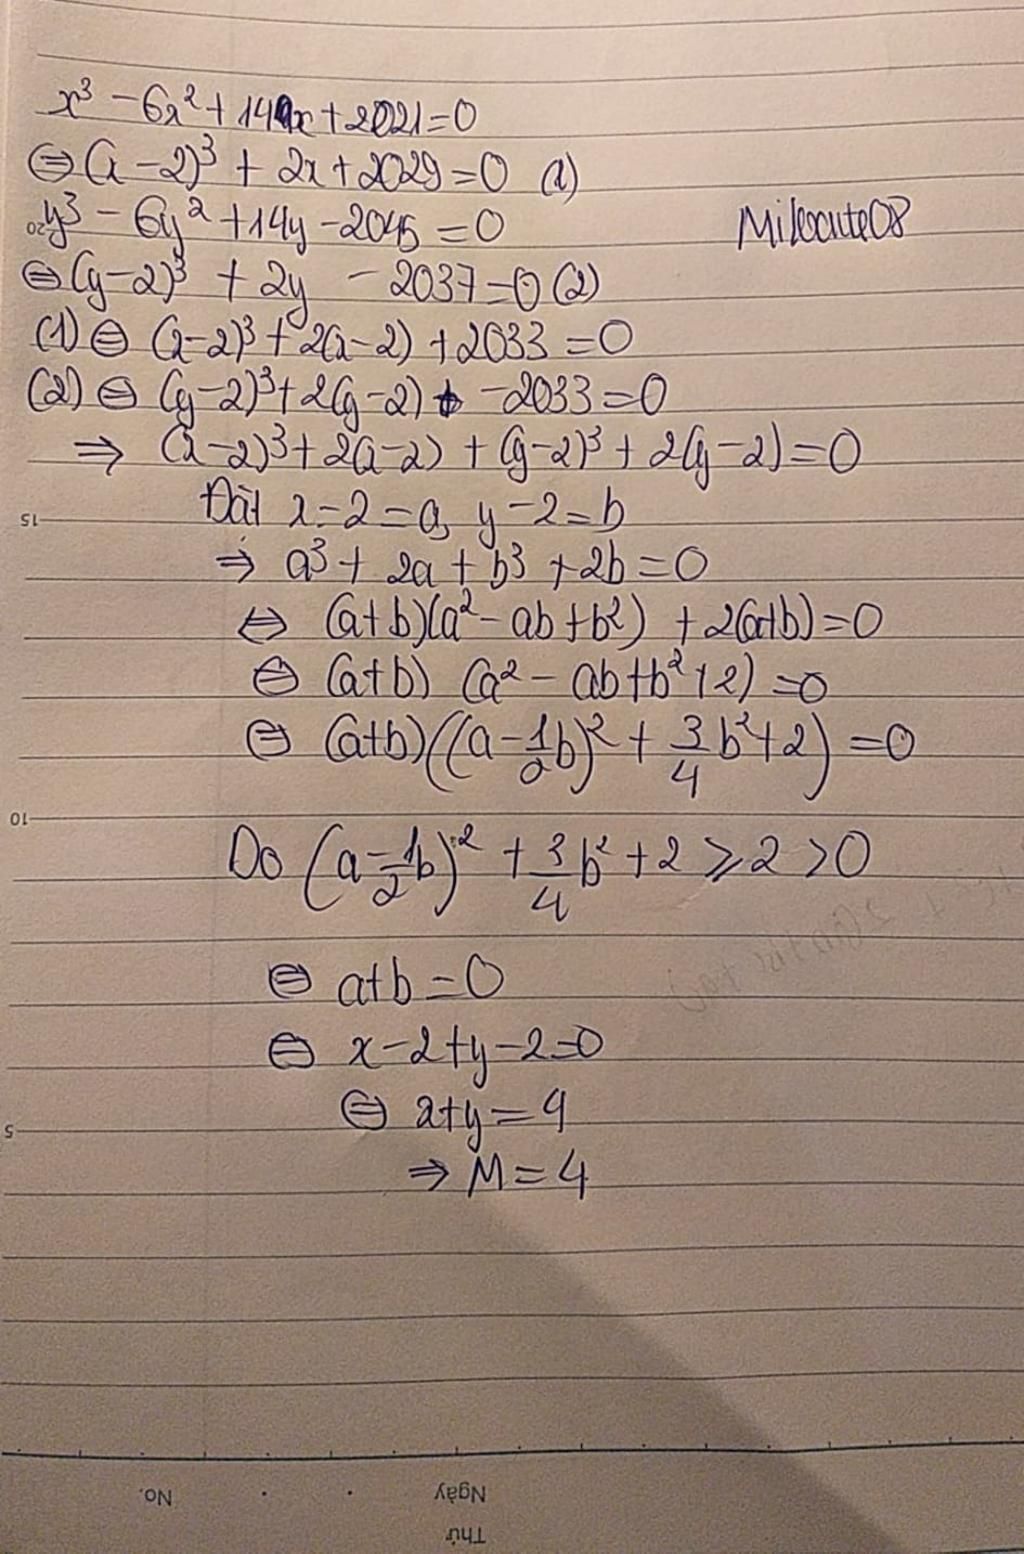 x³ - 6x² + 14x + 2021 = 0
⇔ (x - 2)³ + 2x + 2029 = 0 (1)
y³ - 6y² + 14y - 2045 = 0
20
Milocute08
⇔ (y - 2)³ + 2y - 2037 = 0 (2)
(1) ⇔ (x - 2)³ + 2(x - 2) + 2033 = 0
(2) ⇔ (y - 2)³ + 2(y - 2) - 2033 = 0
⇒ (x - 2)³ + 2(x - 2) + (y - 2)³ + 2(y - 2) = 0
15
Đặt x - 2 = a, y - 2 = b
⇒ a³ + 2a + b³ + 2b = 0
⇔ (a + b)(a² - ab + b²) + 2(a+b) = 0
⇔ (a+b) (a² - ab + b² + 2) = 0
⇔ (a+b)((a - 1/2 b)² + 3/4 b² + 2) = 0
10
Do (a - 1/2 b)² + 3/4 b² + 2 ⩾ 2 > 0
⇔ a + b = 0
⇔ x - 2 + y - 2 = 0
⇔ x + y = 4
5
⇒ M = 4
No.
Ngày
Thứ